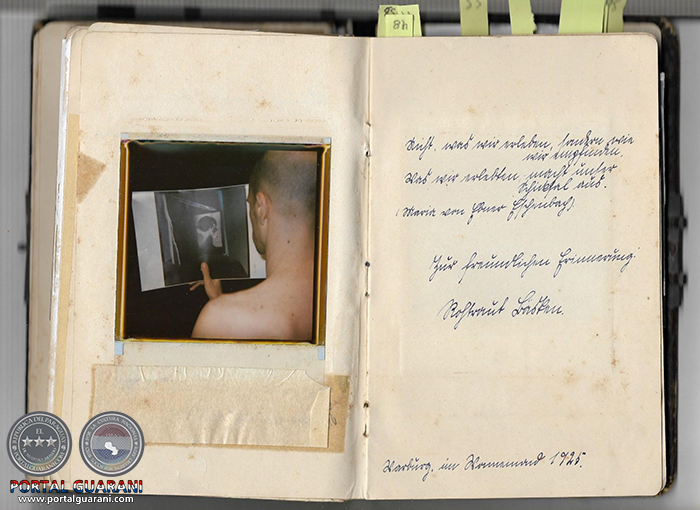 48
55
Nicht, was wir erleben, sondern, wie
wir empfinden,
Was wir erlebten, macht unser
Schicksal aus.
(Maria von Ebner Eschenbach)
Zur freundlichen Erinnerung:
Rohtraut Basken.
Warburg, im Wonnemond 1925.
REPUBLICA DEL PARAGUAY
EL
PORTAL GUARANI
www.portalguarani.com